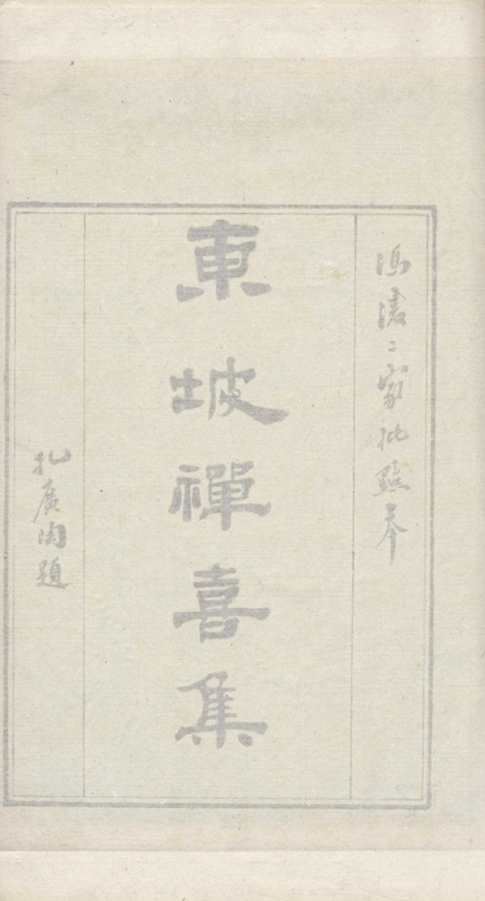 馮凌二家批點本
東坡禪喜集
孔廣陶題